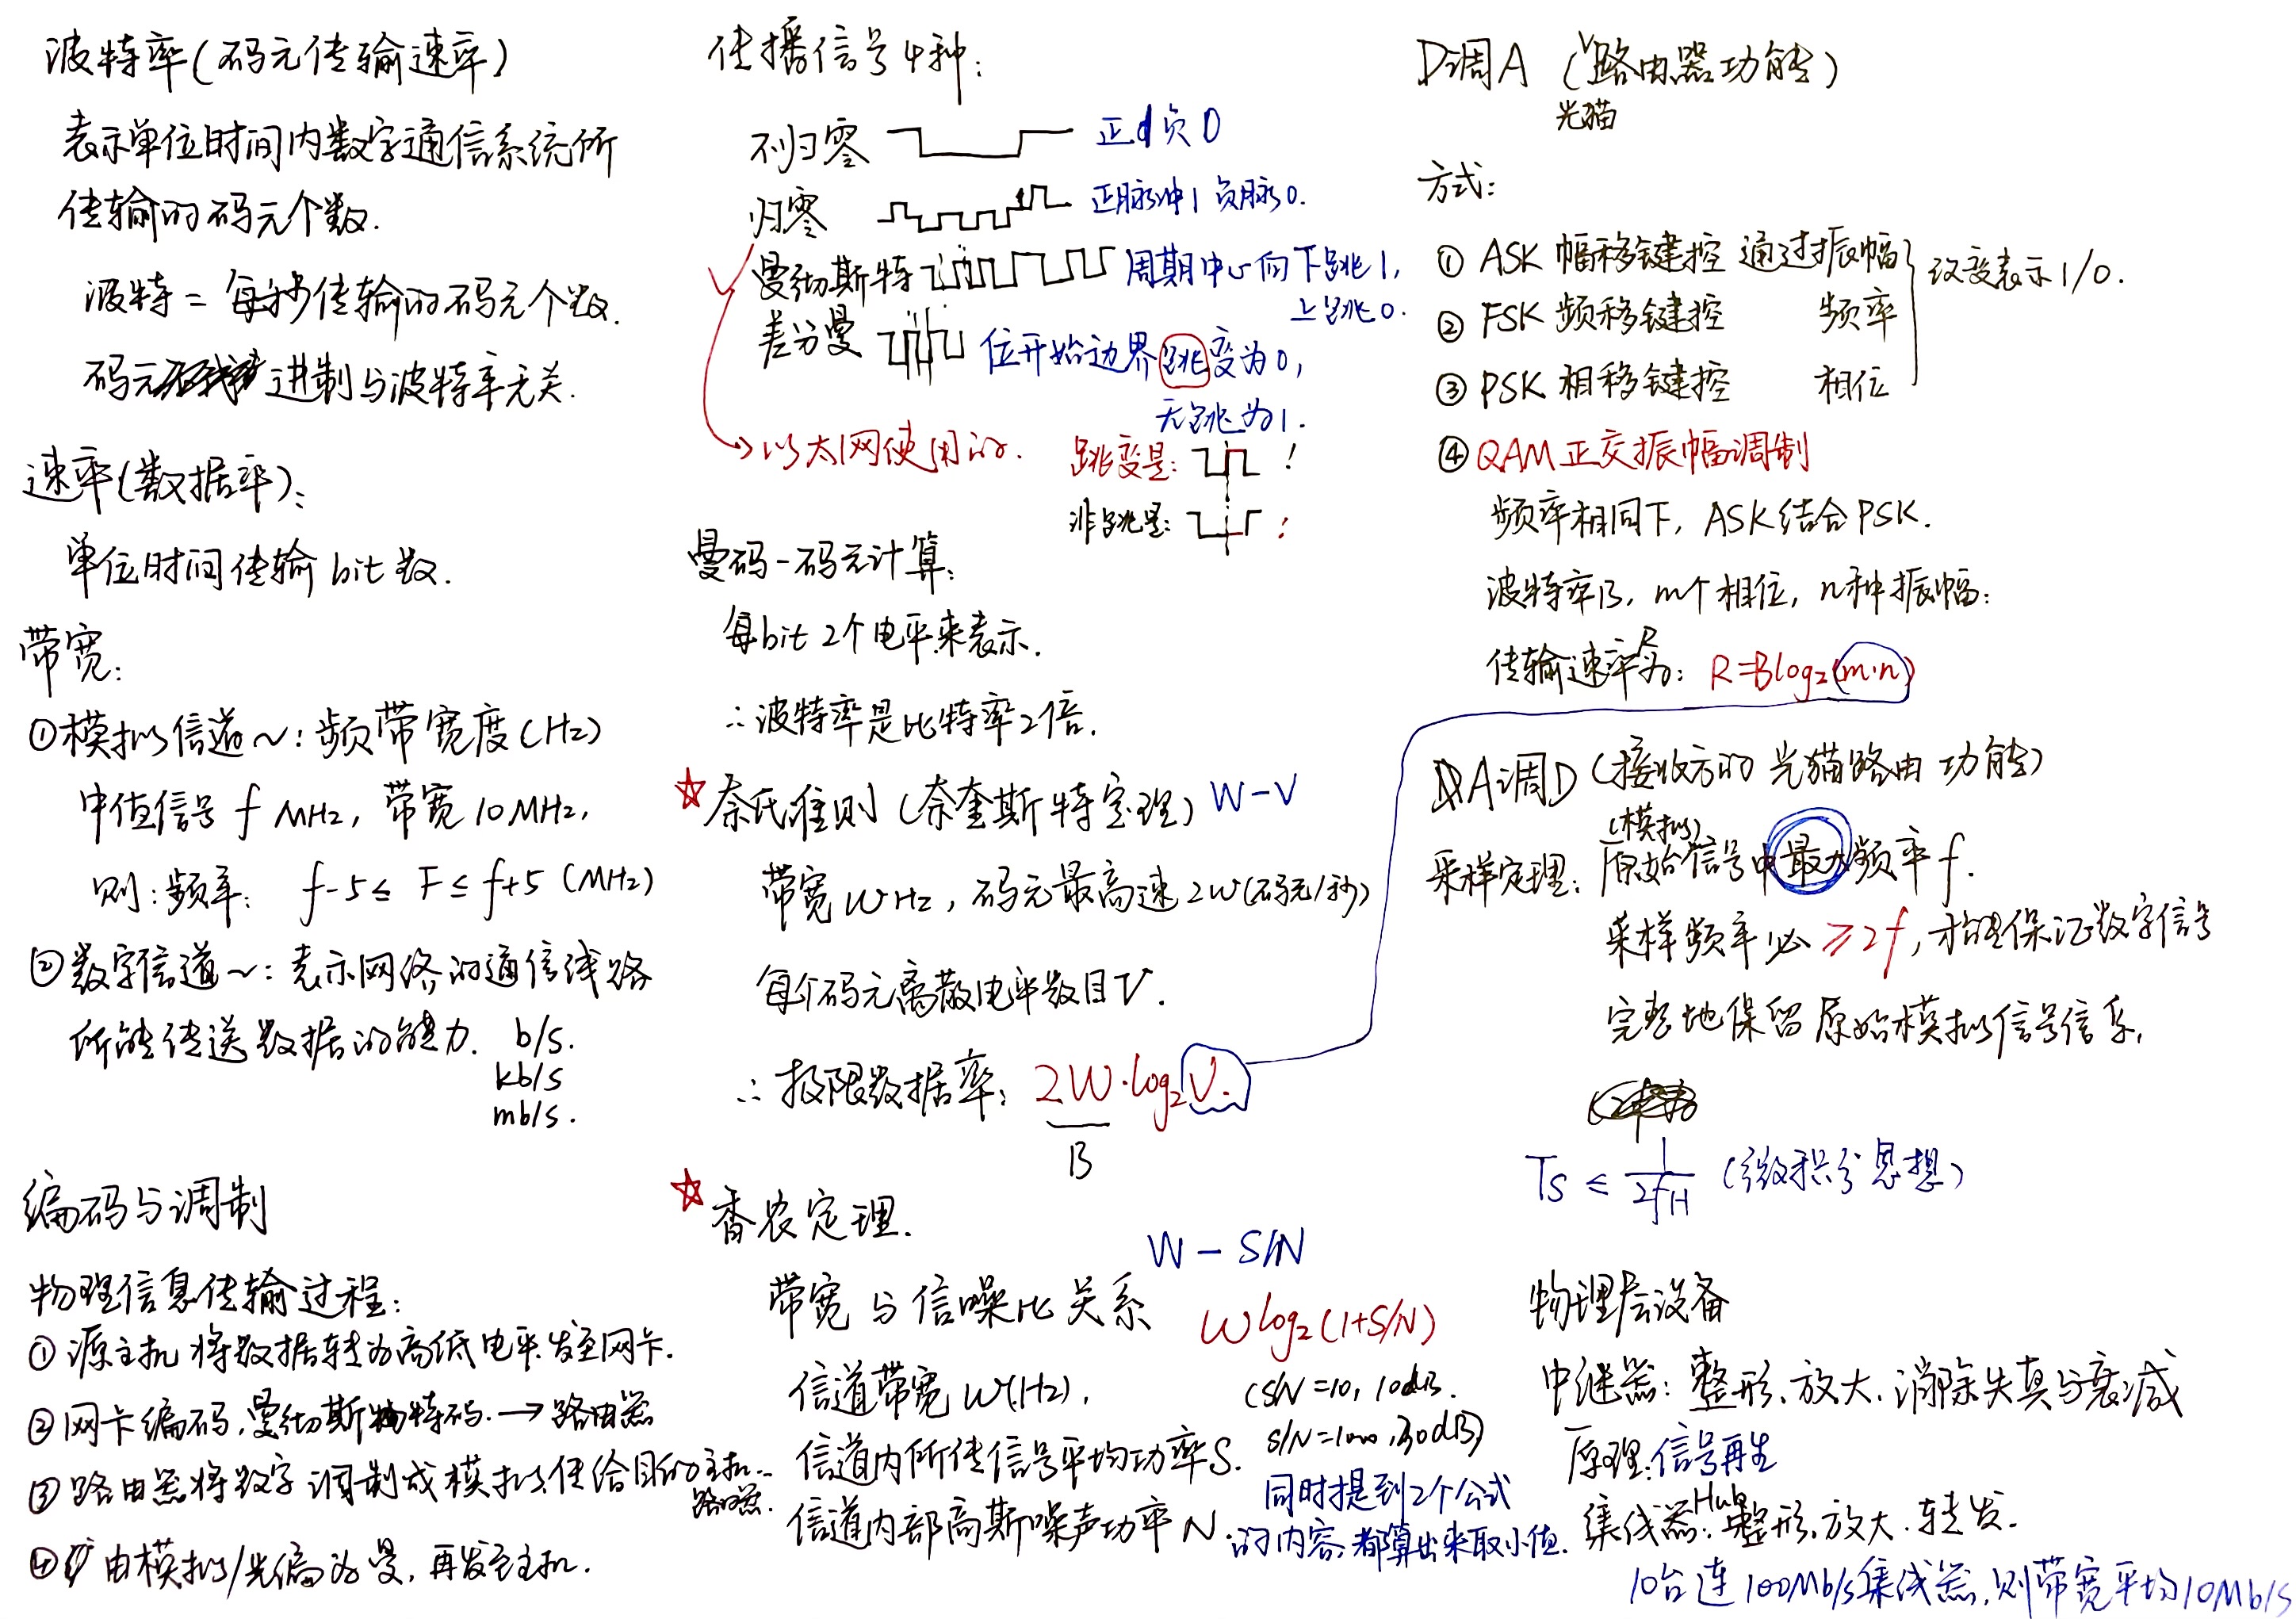 波特率(码元传输速率)
表示单位时间内数字通信系统所
传输的码元个数.
波特 = 每秒传输的码元个数.
码元进制与波特率无关.
速率(数据率):
单位时间传输 bit 数.
带宽:
①模拟信道～: 频带宽度(Hz)
中值信号 f MHz, 带宽 10 MHz,
则: 频率: f-5 ≤ F ≤ f+5 (MHz)
②数字信道～: 表示网络的通信线路
所能传送数据的能力. b/s.
kb/s
mb/s.
编码与调制
物理信息传输过程:
① 源主机 将数据转为高低电平.发至网卡.
② 网卡编码,曼彻斯特码. → 路由器
③ 路由器将数字调制成模拟,传给目的主机
路由器.
④ 由模拟/光编为曼, 再发至主机.
传播信号4种:
不归零 正1负0
归零 正脉冲1 负脉0.
曼彻斯特 周期中心向下跳1,
上跳0.
差分曼 位开始边界跳变为0,
无跳为1.
以太网使用的.
跳变是: !
非跳是: !
曼码-码元计算:
每bit 2个电平来表示.
∴ 波特率是比特率2倍.
☆ 奈氏准则 (奈奎斯特定理) W-V
带宽 W Hz, 码元最高速 2W(码元/秒)
每个码元离散电平数目V.
∴ 极限数据率: 2W·log₂V.
B
☆ 香农定理.
W - S/N
带宽 与 信噪比 关系
Wlog₂(1+S/N)
信道带宽 W(Hz),
(S/N =10, 10dB.
S/N=1000,30dB)
信道内所传信号平均功率S.
信道内部高斯噪声功率 N.
同时提到2个公式
的内容,都算出来取小值.
D调A (路由器功能)
光猫
方式:
① ASK 幅移键控 通过振幅
② FSK 频移键控 频率
③ PSK 相移键控 相位
改变表示 1/0.
④ QAM 正交振幅调制
频率相同下, ASK 结合 PSK.
波特率B, m个相位, n种振幅:
传输速率R为: R=Blog₂(m·n)
A调D (接收方的 光猫路由 功能)
(模拟)
采样定理: 原始信号中最大频率 f.
采样频率必 ≥2f, 才能保证数字信号
完整地保留原始模拟信号信息.
Ts ≤ 1/2fH (微积分思想)
物理层设备
中继器: 整形、放大、消除失真与衰减
原理:信号再生
集线器Hub: 整形,放大.转发.
10台连100Mb/s集线器,则带宽平均10Mb/s